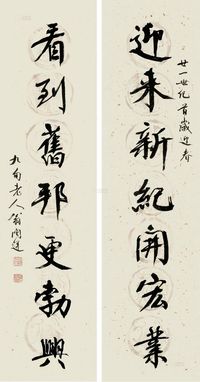 廿一世纪首岁迎春
迎来新紀開宏業
看到舊邦更勃興
九旬老人翁闿运